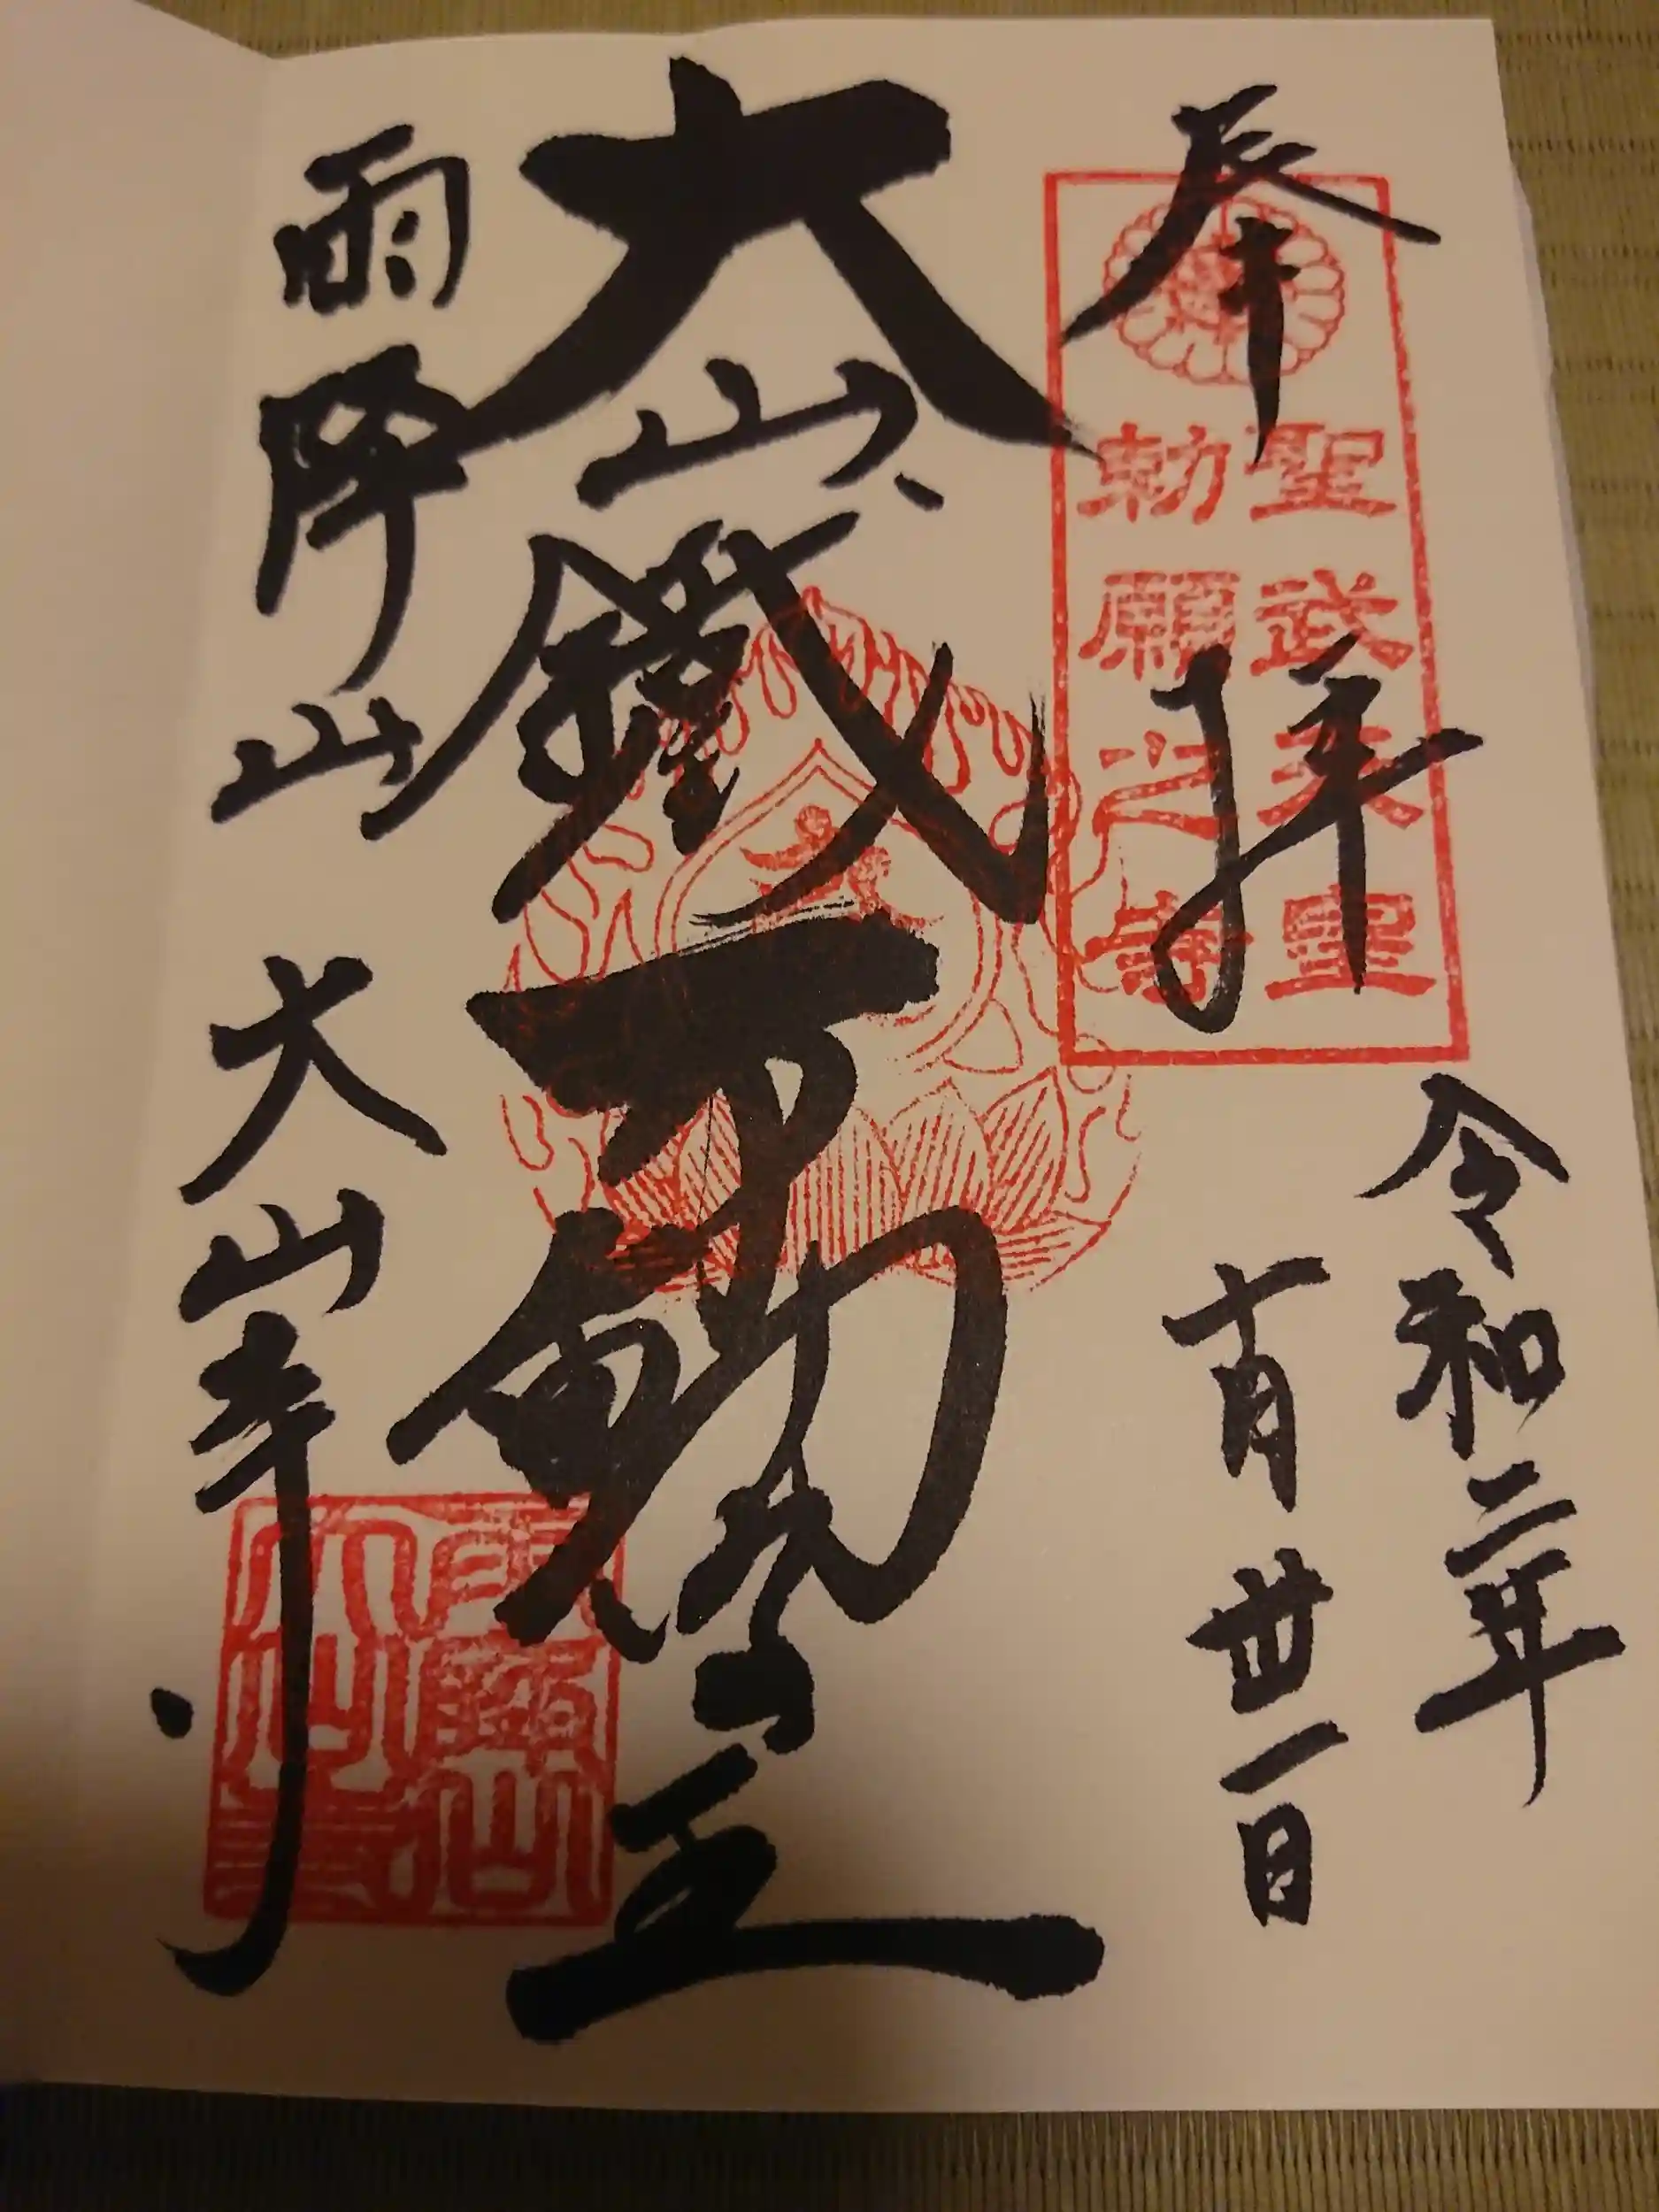 奉拝
令和二年
十月卅一日
聖武天皇
勅願之寺
大山鐵不動明王
雨降山 大山寺
雨降山
大山寺